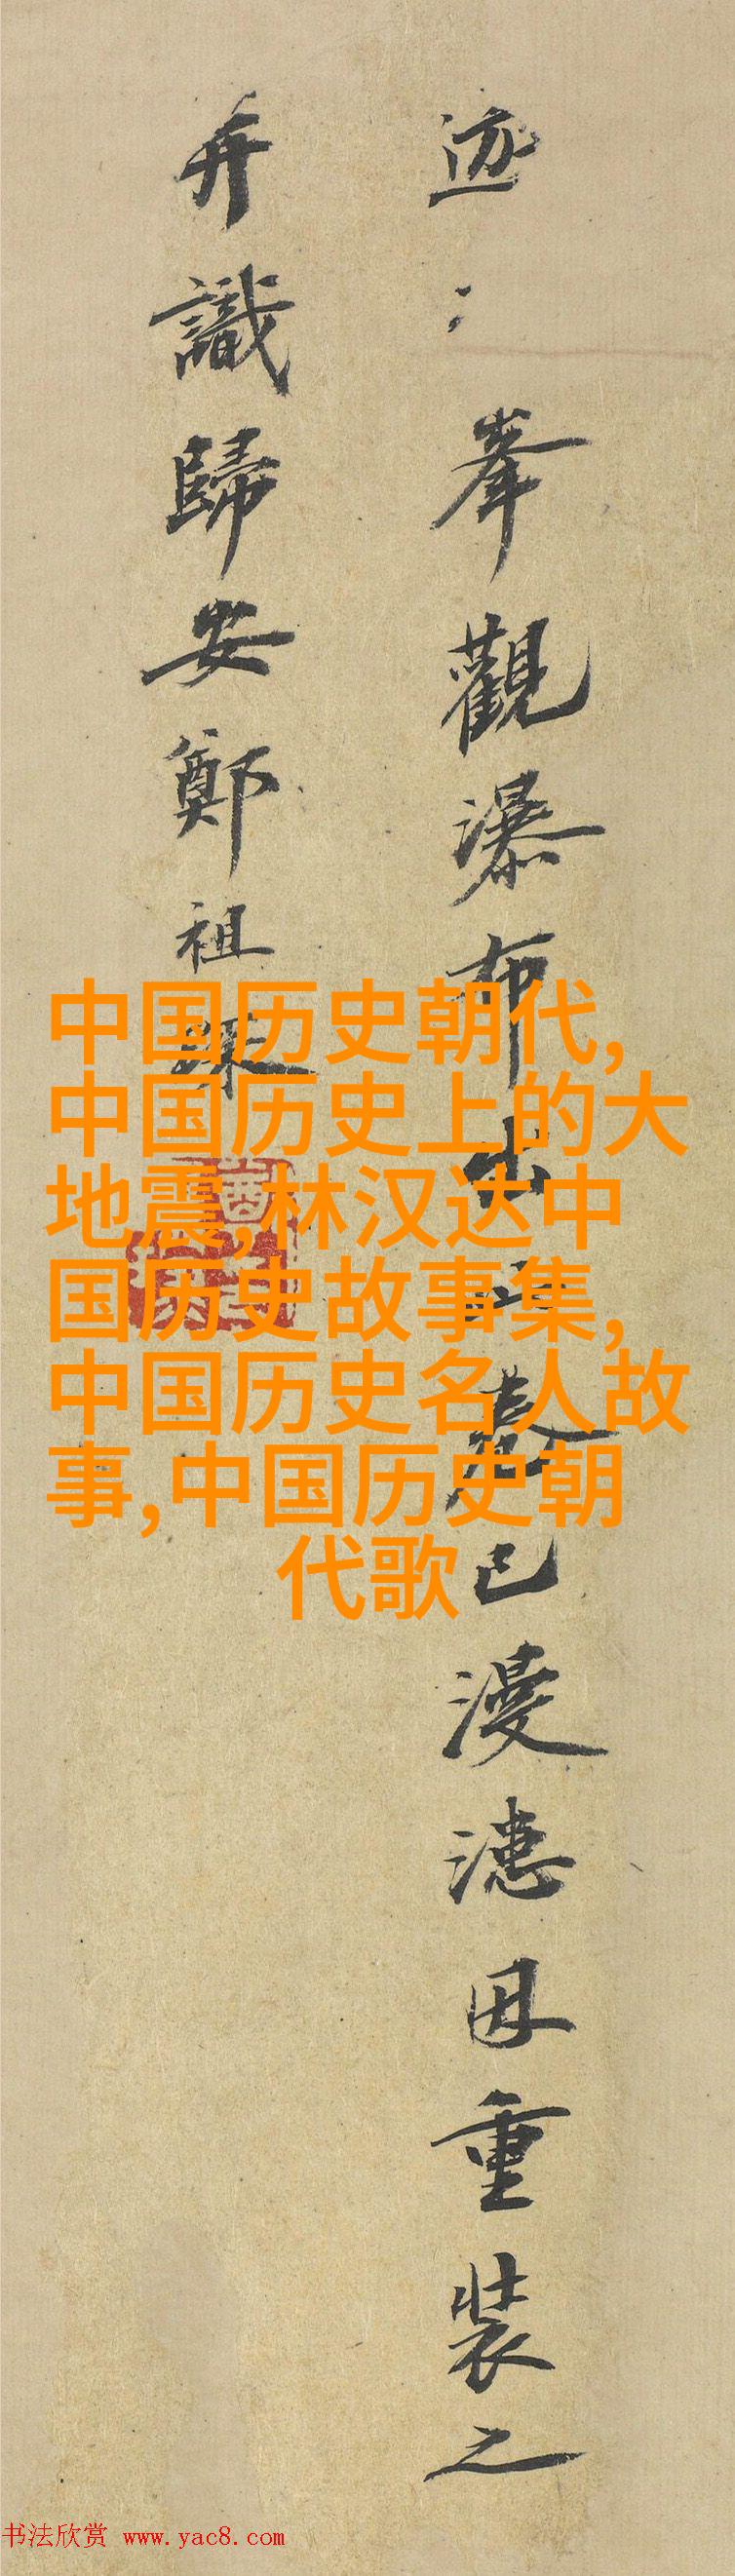 迹〻峯觀瀑布
已漫漶因重裝之
弆識歸安鄭祖琛
中国历史朝代,
中国历史上的大
地震,林汉达中
国历史故事集,
中国历史名人故
事,中国历史朝
代歌
书法欣赏 www.yac8.com